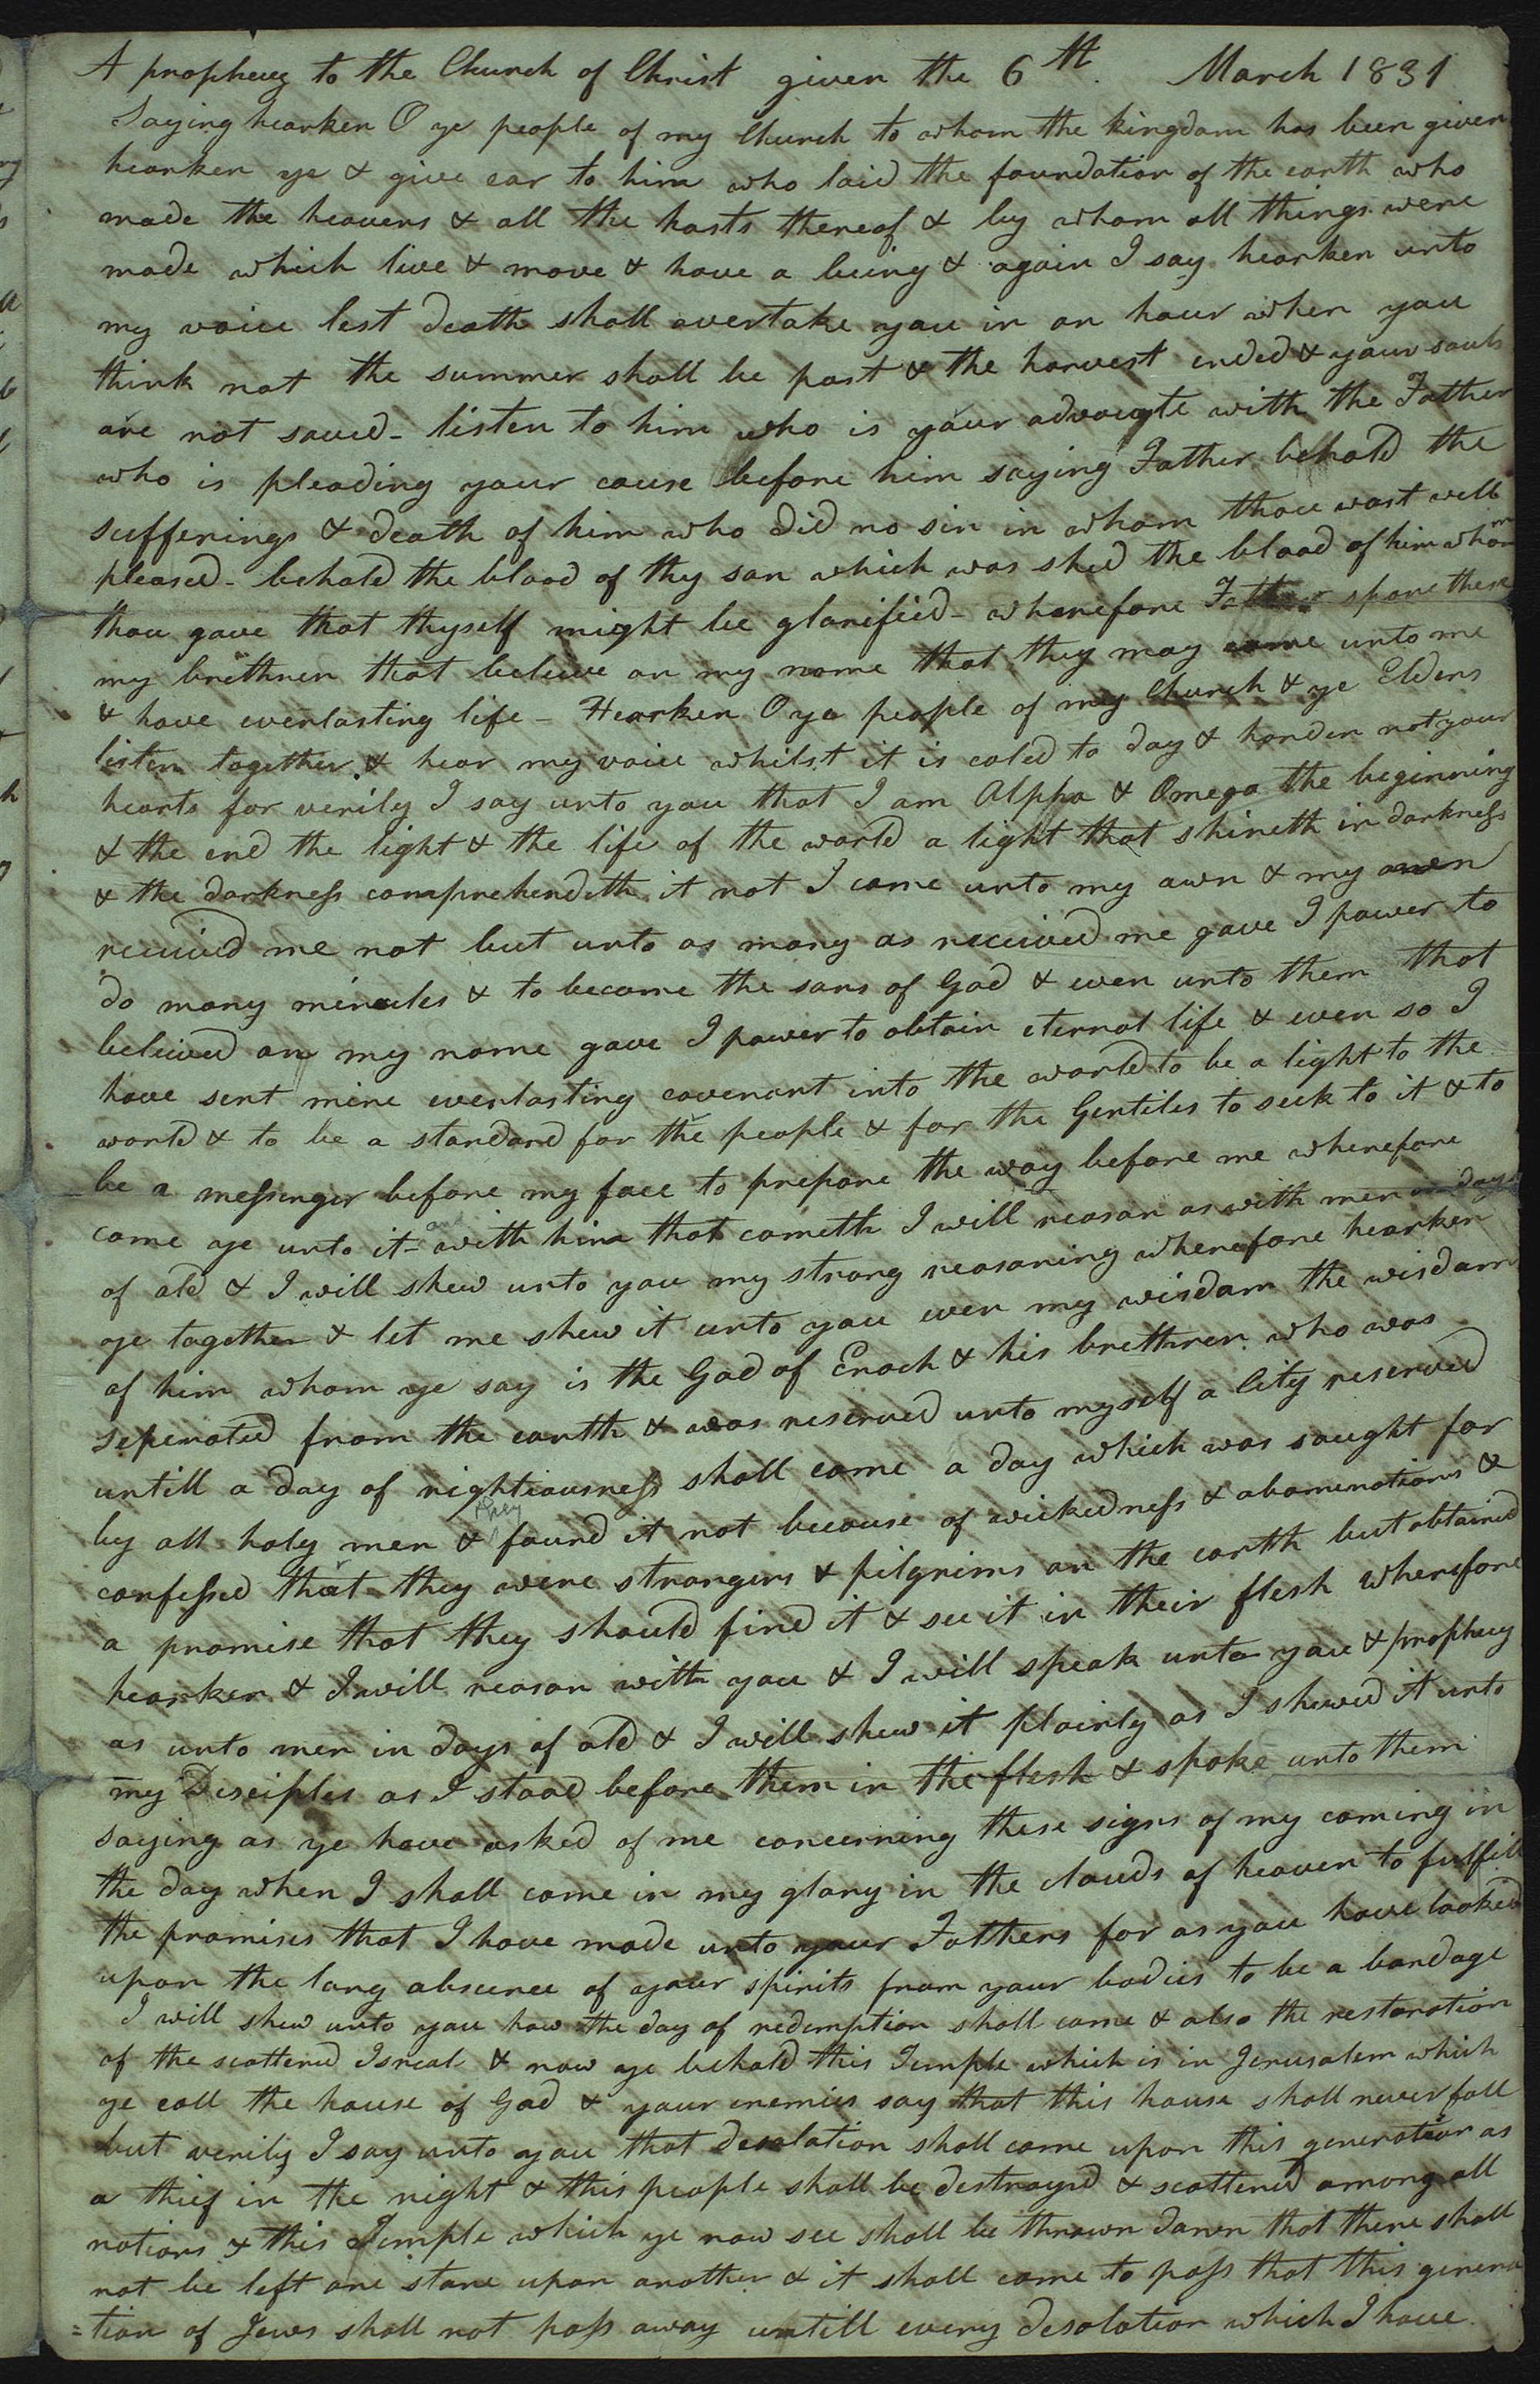 A prophecy to the Church of Christ given the 6th. March 1831
Saying hearken O ye people of my Church to whom the kingdom has been given
hearken ye & give ear to him who laid the foundation of the earth who
made the heavens & all the hosts thereof & by whom all things were
made which live & move & have a being & again I say hearken unto
my voice lest death shall overtake you in an hour when you
think not the summer shall be past & the harvest ended & your souls
are not saved - listen to him who is your advocate with the Father
who is pleading your cause before him saying Father behold the
sufferings & death of him who did no sin in whom thou wast well
pleased - behold the blood of thy son which was shed the blood of him whom
thou gave that thyself might be glorified - wherefore Father spare these
my brethren that believe on my name that they may come unto me
& have everlasting life - Hearken O ye people of my Church & ye Elders
listen together & hear my voice whilst it is caled to day & harden not your
hearts for verily I say unto you that I am Alpha & Omega the beginning
& the end the light & the life of the world a light that shineth in darkness
& the darkness comprehendeth it not I came unto my own & my own
received me not but unto as many as received me gave I power to
do many miracles & to become the sons of God & even unto them that
believed on my name gave I power to obtain eternal life & even so I
have sent mine everlasting covenant into the world to be a light to the
world & to be a standard for the people & for the Gentiles to seek to it & to
be a messenger before my face to prepare the way before me wherefore
come ye unto it - and with him that cometh I will reason as with men in days
of old & I will shew unto you my strong reasoning wherefore hearken
ye together & let me shew it unto you even my wisdom the wisdom
of him whom ye say is the God of Enoch & his brethren who was
seperated from the earth & was reserved unto myself a City reserved
untill a day of rightiousness shall come a day which was saught for
by all holy men & they found it not because of wickedness & abomenations &
confessed that they were strangers & pilgrims on the earth but obtained
a promise that they should find it & see it in their flesh Wherefore
hearken & I will reason with you & I will speak unto you & prophecy
as unto men in days of old & I will shew it plainly as I shewed it unto
my Disciples as I stood before them in the flesh & spoke unto them
saying as ye have asked of me concerning these signs of my coming in
the day when I shall come in my glory in the clouds of heaven to fulfill
the promises that I have made unto your Fathers for as you have looked
upon the long abscence of your spirits from your bodies to be a bondage
I will shew unto you how the day of redemption shall come & also the restoration
of the scattered Isreal & now ye behold this Temple which is in Jerusalem which
ye call the house of God & your enemies say that this house shall never fall
but verily I say unto you that desolation shall come upon this generation as
a thief in the night & this people shall be destroyed & scattered among all
nations & this Temple which ye now see shall be thrown down that there shall
not be left one stone upon another & it shall come to pass that this genera
=tion of Jews shall not pass away untill every desolation which I have